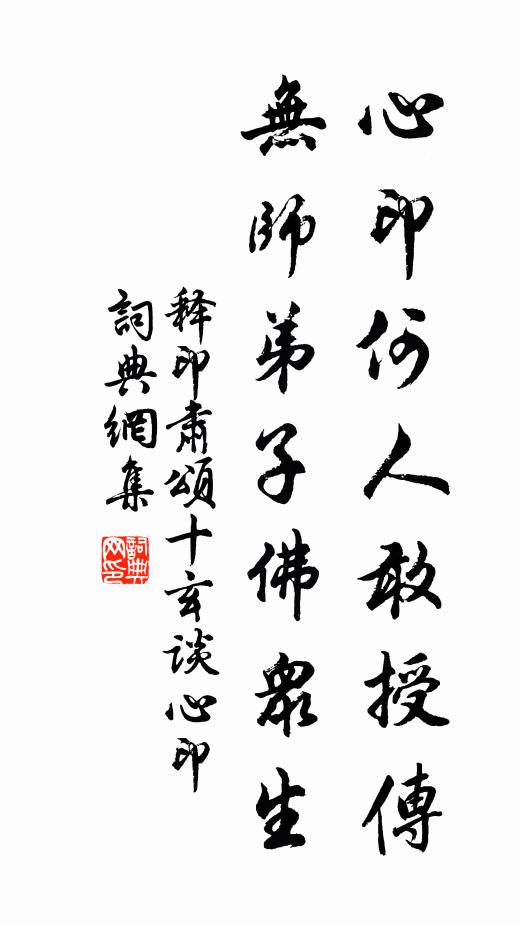 心印何人敢授傳
無師弟子佛眾生
释印肃頌十玄談心印
詞典網集
詞典网印